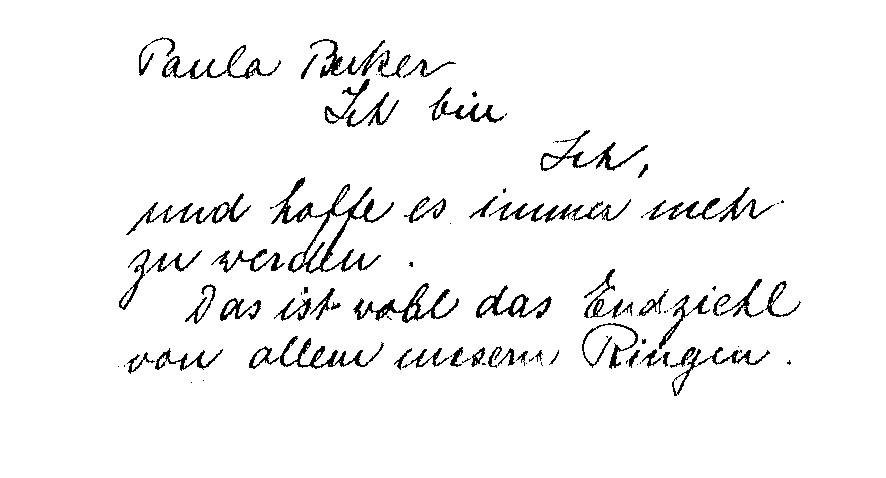 Paula Becker
Ich bin
Ich,
und hoffe es immer mehr
zu werden.
Das ist wohl das Endziehl
von allem unsern Ringen.